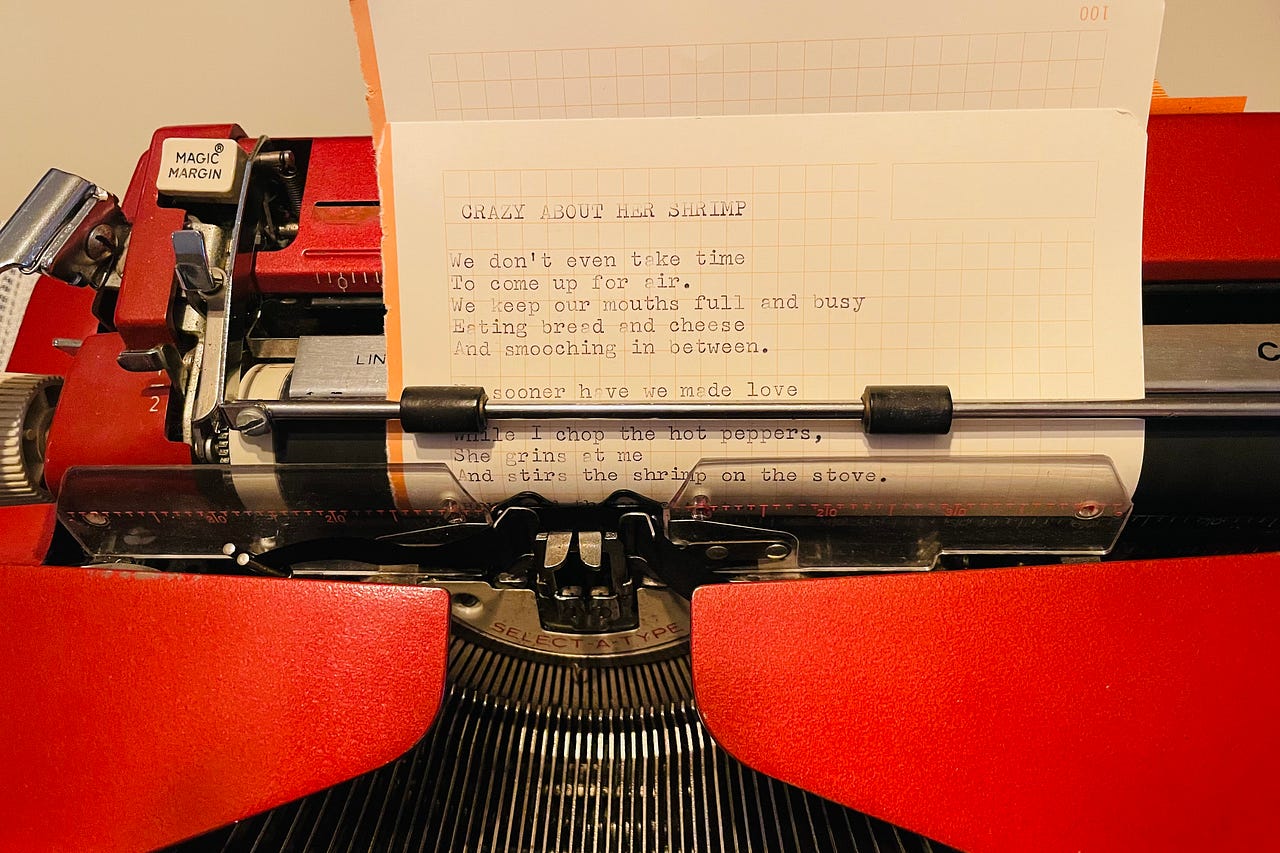 100
MAGIC®
MARGIN
CRAZY ABOUT HER SHRIMP
We don't even take time
To come up for air.
We keep our mouths full and busy
Eating bread and cheese
And smooching in between.
sooner have we made love
While I chop the hot peppers,
She grins at me
And stirs the shrimp on the stove.
LIN
C
2
20
20
20
30
SELECT-A-TYPE